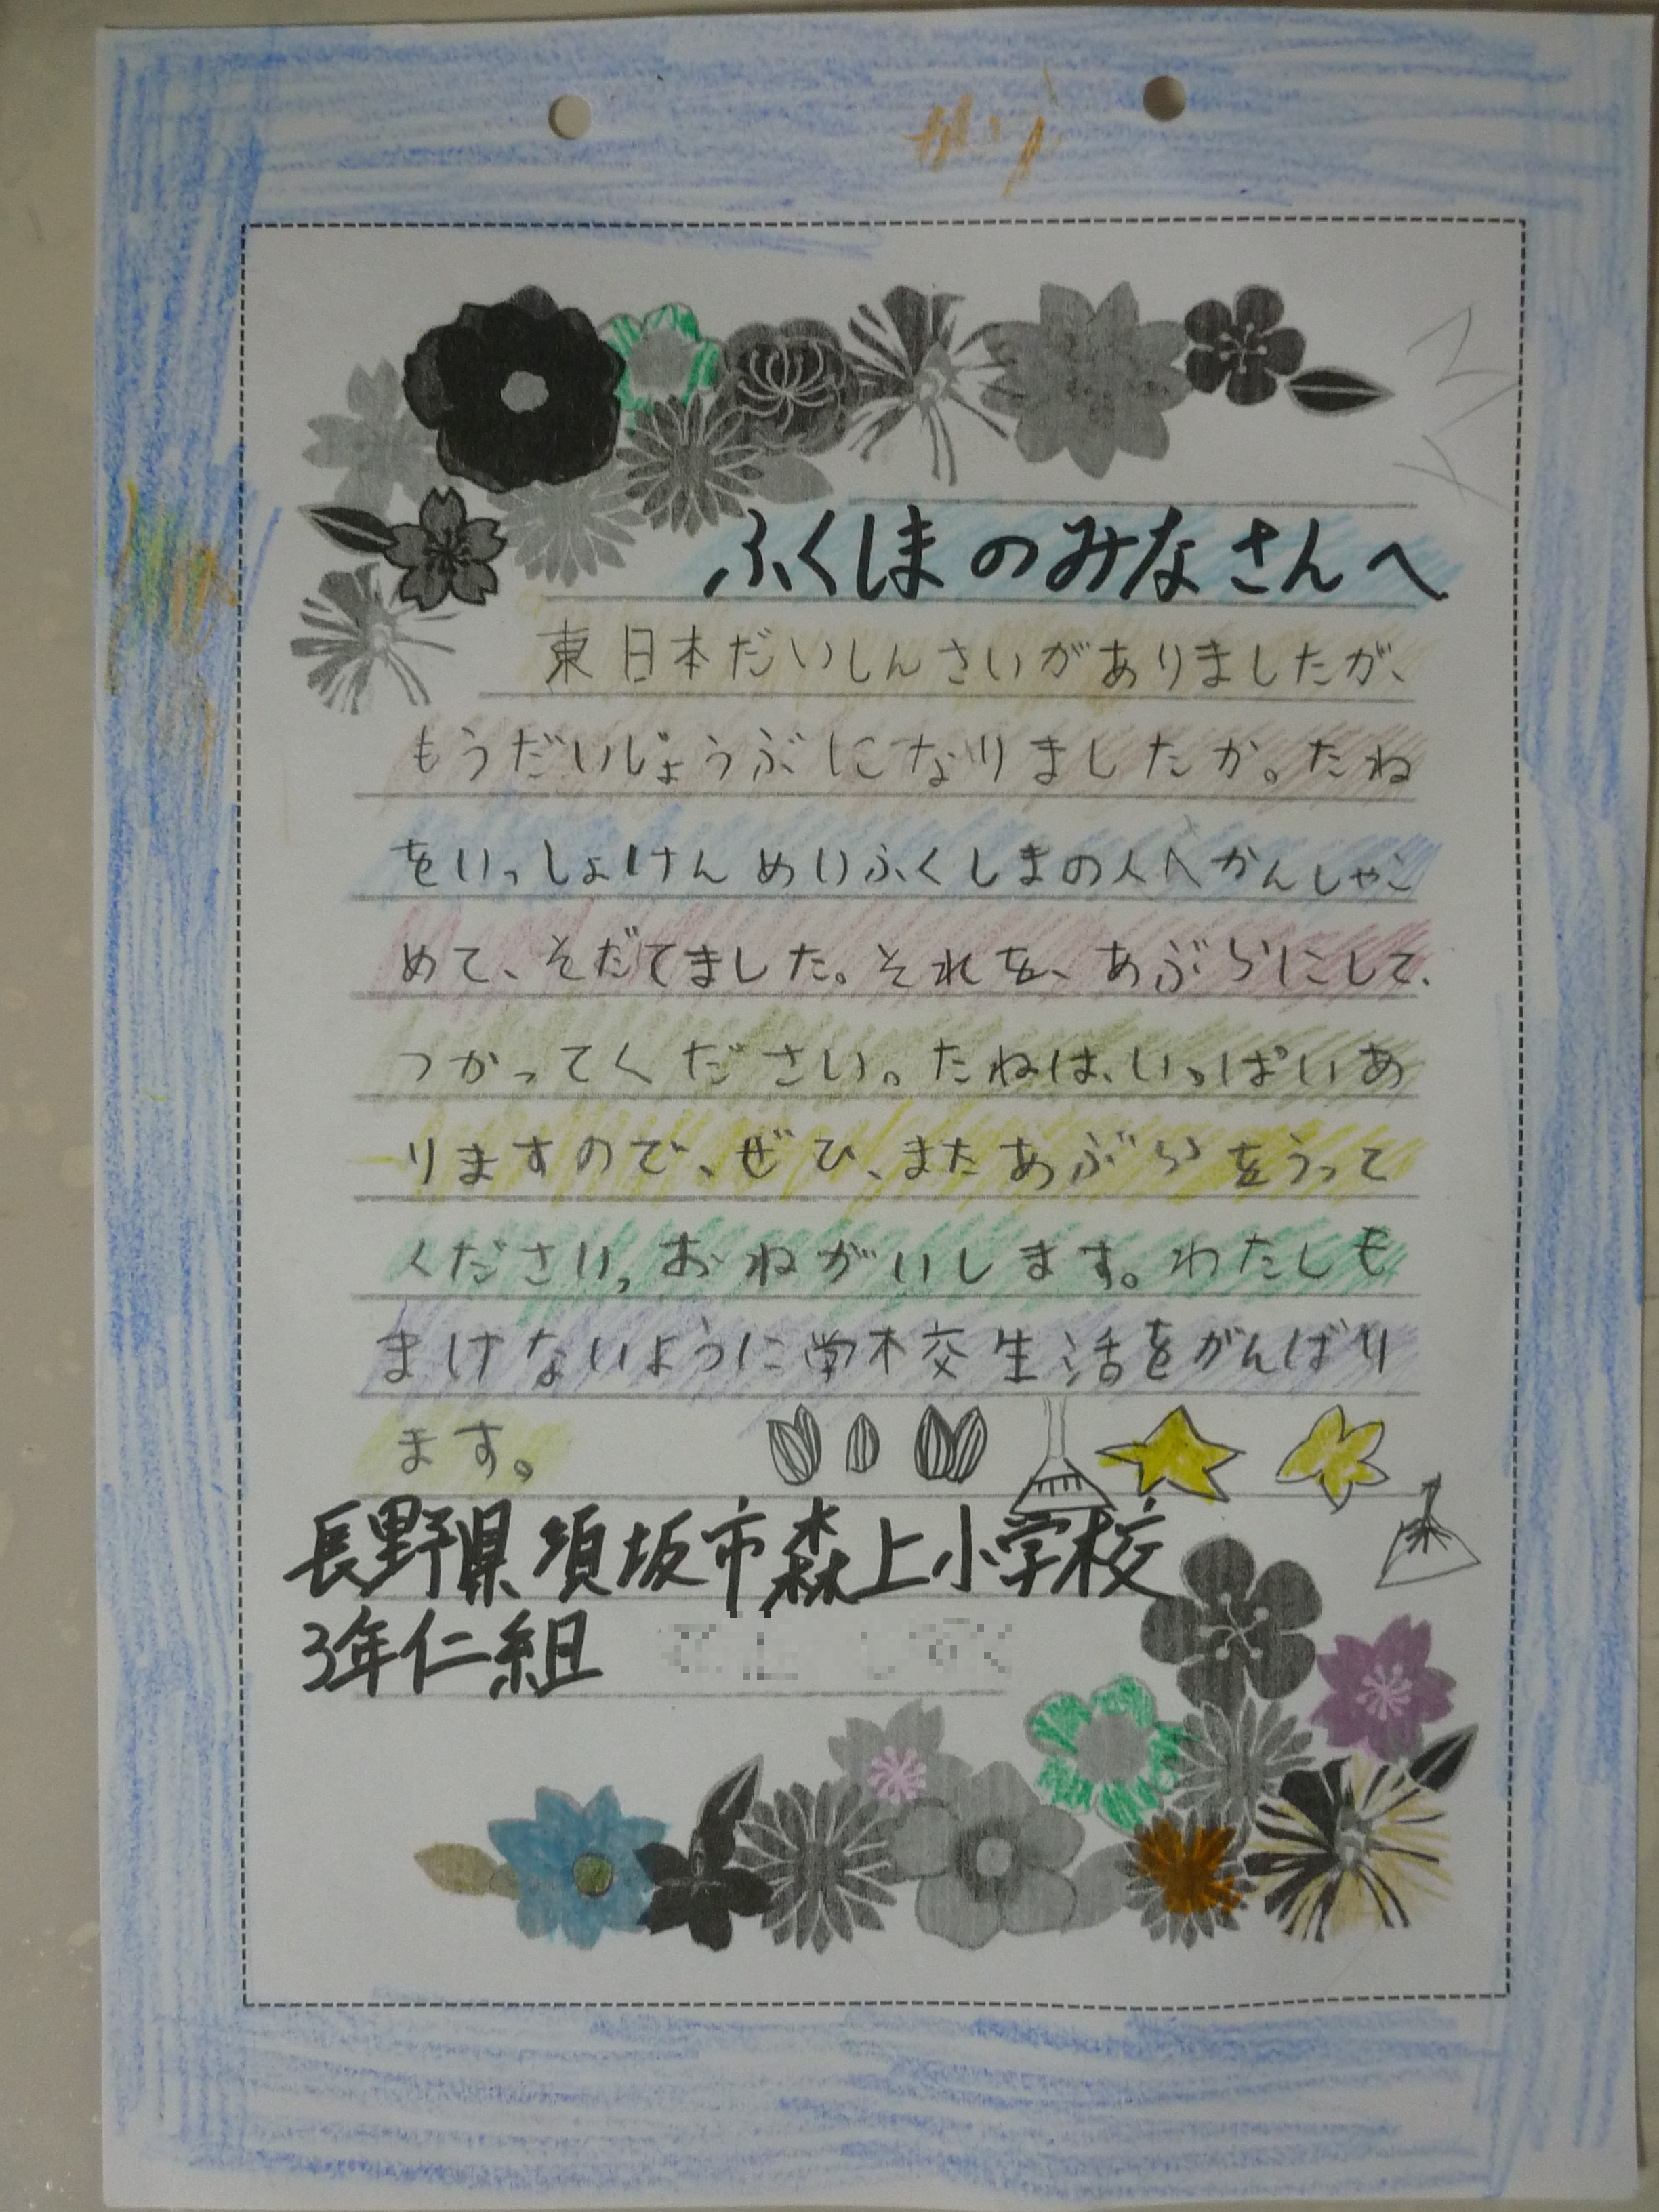 ふくしまのみなさんへ
東日本だいしんさいがありましたが、
もうだいじょうぶになりましたか。たね
をいっしょけんめいふくしまの人へかんしゃこ
めて、そだてました。それを、あぶらにして、
つかってください。たねは、いっぱいあ
りますので、ぜひ、またあぶらをうって
ください、おねがいします。わたしも
まけないように学校生活をがんばり
ます。
長野県須坂市森上小学校
3年仁組